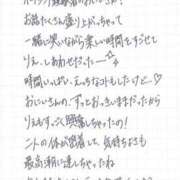 お話たくさん盛り上がっちゃって
一緒に笑いながら楽しい時間をすごせて
りぇ、しあわせだったー
時間いっぱい、えっちなコトもしたけど♡
おにいさんの、ずっとおっきいままだったから
りえもすっごく興奮しちゃったの!
二人の体が密着して、気持ちよさも
最高潮に達しちゃったね